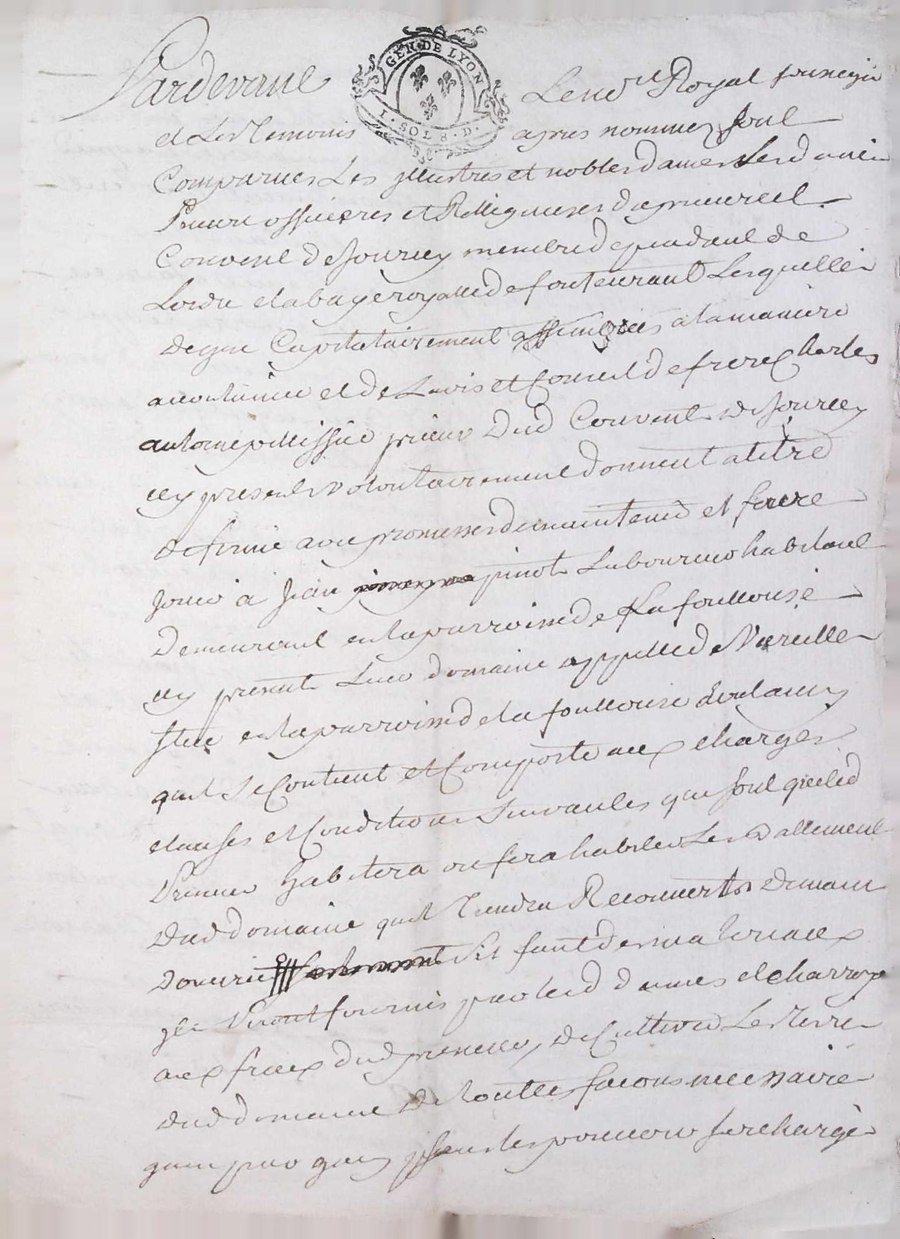 Pardevant Le no.re Royal soussigné
GEN. DE LYON
1. SOL 8. D.
et Les Temoins apres nommez sont
Comparues Les illustres et nobles dames Les dames
Prieure officieres et Religieuses du prieure et
Couvent de Jourcey membre dependant de
Lordre et abaye royalle de fonteurault Lesquelles
de gré Capitulairement assemblées a la maniere
accoutumée et de Lavis et Conseil de frere Charles
antoine prieur Dud Couvent de Jourcey
icy present volontairement donnent a titre
de ferme avec promesses de maintenir et faire
Jouir a Jean pinot Laboureur habitant
Demeurant en la parroisse de La foullouse
icy present Leur domaine appellé de
situé en la parroisse de la foullouse Et
quil se Contient et Comporte aux charges
clauses et Conditions suivantes qui sont que led
Preneur habitera ou fera habiter Les
Dud domaine quil Tiendra Recouverts de main
Douvrier sit faut des materiaux
ils seront fournis par lesd dames et charroyé
aux fraix dud preneur, de Cultiver Les Terres
dud domaine de toutes façons necessaires
sans par quil les pouvoir surcharger